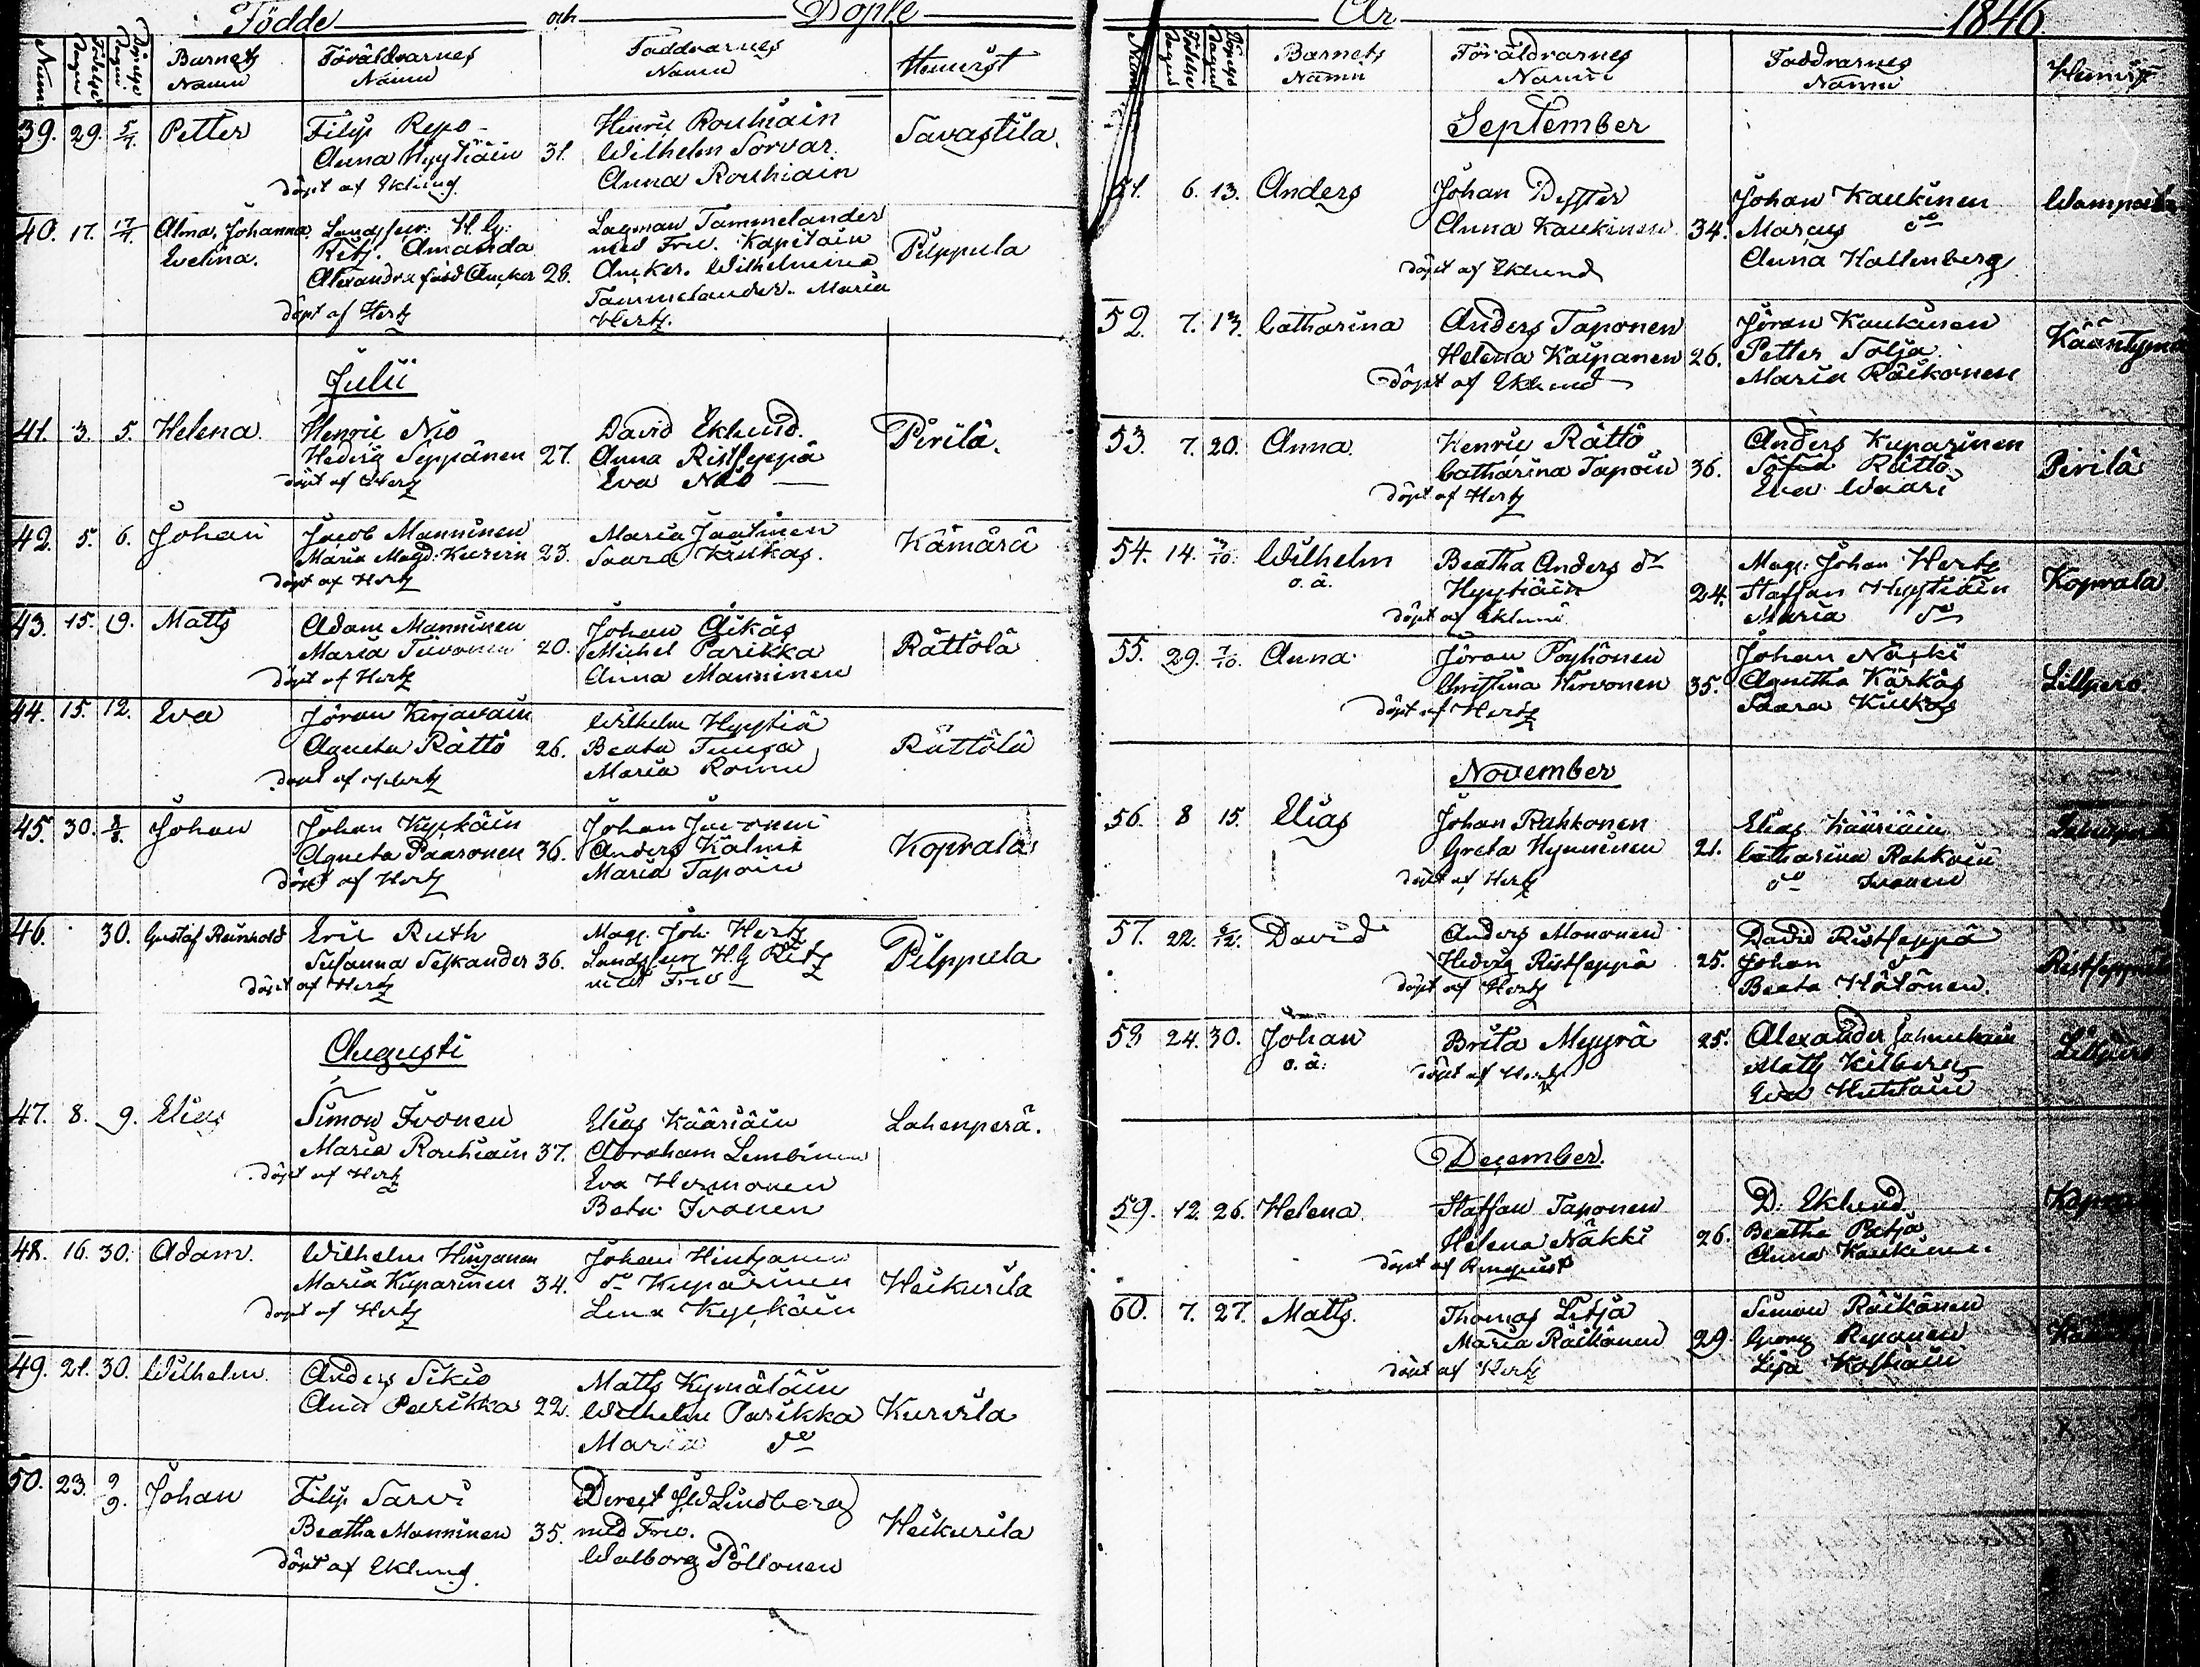 Födde och Döpte
Num: Födelse Dagen Döpelse Dagen Barnets Namn Föräldrarnes Namn Faddrarnes Namn Hemvist
39. 29. 5/7. Petter Filip Repo Henric Rouhiain Savastila.
Anna Hyytiäin 31. Wilhelm Sorvar.
döpt af Eklund. Anna Rouhiain
40. 17. 17/7. Alma Johanna Landsfur: H. G: Lagman Tammelander Pilppula
Evelina. Ritz. Amanda med Fru. Kapitain
Alexandra född Ancker 28. Ancker. Wilhelmina
Tammelander. Maria
döpt af Hertz Hertz.
Julii
41. 3. 5. Helena Henric Nio David Eklund. Pirilä.
Hedvig Seppänen 27. Anna Ristseppä
döpt af Hertz Eva Nio
42. 5. 6. Johan Jacob Manninen Maria Kämärä
Maria Magd: 23. Saara Kiukas.
döpt af Hertz
43. 15. 19. Matts Adam Manninen Johan Äikäs Rättölä
Maria Toivonen 20. Michel Parikka
döpt af Hertz Anna Manninen
44. 15. 12. Eva Jöran Kirjavain Wilhelm Hyytiä Rättölä
Agneta Rättö 26. Beata
döpt af Hertz Maria
45. 30. 2/8. Johan Johan Kyckäin Johan Koprala
Agneta Paaronen 36. Anders Kälmi
döpt af Hertz Maria Tapoin
46. 30. Gustaf Reinhold Eric Ruth Mag. Joh. Hertz Pilppula
Susanna Seskander 36. Landsfur H. G Ritz
döpt af Hertz med Fru
Augusti
47. 8. 9. Elias Simon Ivonen Elias Kääriäin Lahenperä.
Maria Rouhiain 37. Abraham Lembinen
döpt af Hertz Eva Hermonen
Beata Ivonen
48. 16. 30. Adam. Wilhelm Hinzanen Johan Heikurila
Maria Kuparinen 34. do Kuparinen
döpt af Hertz Lena Kyckäin
49. 21. 30. Wilhelm. Anders Sikiö Matts Kymäläin Kurvila
Anna Parikka 22. Wilhelm Parikka
Maria do
50. 23. 9/9. Johan Filip Sarvi Direct Lindberg Heikurila
Beatha Manninen 35. med Fru.
döpt af Eklund. Walborg Pöllonen
År 1846.
Num: Födelse Dagen Döpelse Dagen Barnets Namn Föräldrarnes Namn Faddrarnes Namn Hemvist
September
51. 6. 13. Anders Johan Dyster Johan Kaukinen
Anna Kaukinen 34. Marcus do
döpt af Eklund Anna Hallenberg
52. 7. 13. Catharina Anders Taponen Jöran Kaukinen
Helena Kaipanen 26. Petter Solja
döpt af Eklund Maria Räikonen
53. 7. 20. Anna. Henric Rättö Anders Kuparinen Pirilä
Catharina Tapoin 36. Sofia Rättö
döpt af Hertz Eva Waari
54. 14. Wilhelm Beatha Anders dr Mag: Johan Hertz Koprala
o. ä. Hyytiäin 24. Staffan Hyytiäin
döpt af Eklund Maria do
55. 29. 7/10. Anna Jöran Poyhönen Johan Näcki Lillpero
Christina Hirvonen 35. Agnetha Kärkäs
döpt af Hertz Saara Kiukas
November
56. 8 15. Elias Johan Rahkonen Elias Kääriäin
Greta Hynninen 21. Catharina Rahkoin
döpt af Hertz do Ivonen
57. 22. 6/12. David Anders Mononen David Ristseppä Ristseppälä
Hedvig Ristseppä 25. Johan do
döpt af Hertz Beata Hätönen.
58 24. 30. Johan Brita Myyrä 25. Alexander
o. ä. döpt af Hertz Matts Kilberg
Eva
December.
59. 12. 26. Helena Staffan Taponen D. Eklund
Helena Näkki 26. Beatha Patja
döpt af Ringquist Anna Kaukinen.
60. 7. 27. Matts. Thomas Litja Simon Räikönen
Maria Räikönen 29. Georg Reponen
döpt af Hertz Lisa